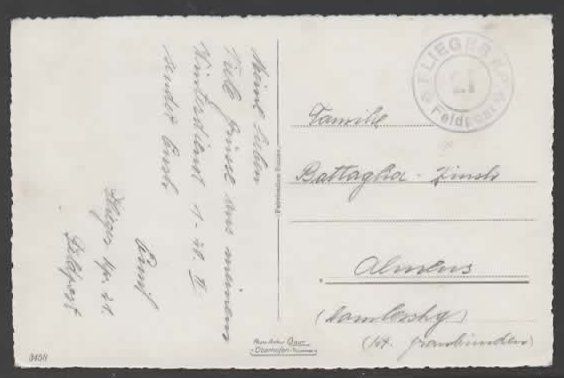 Meine Lieben
Viele Grüsse aus meinem
Winterdienst 1 - 20. II
sendet Euch
Flieger Kp. 21
Feldpost
FLIEGER Kp.
21
Feldpost
Familie
Battaglia - Zinsli
Almens
(Domleschg)
(Kt. Graubünden)
3458